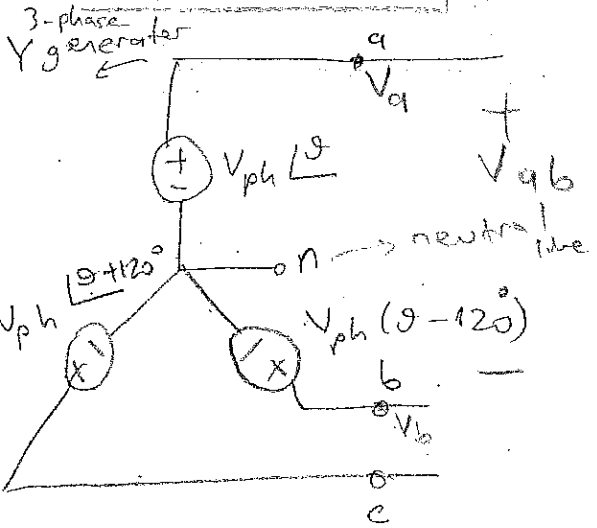 3-phase
Y generater
a
Va
+
Vph ∠θ
+
-
Vab
n → neutral line
Vph ∠θ+120°
Vph (θ-120°)
-
+
-
+
b
-
Vb
c